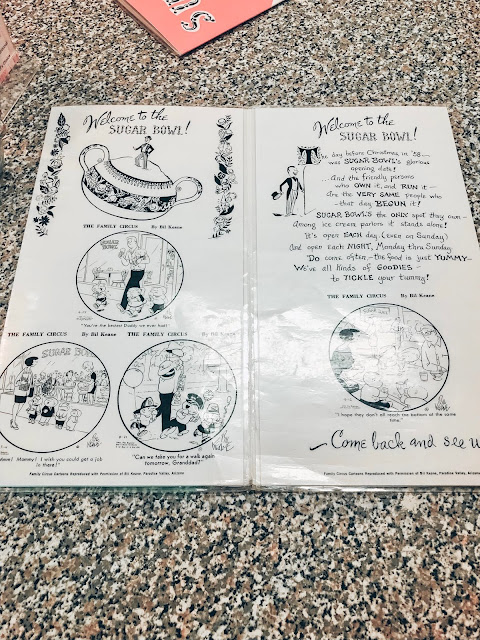 Welcome to the
SUGAR BOWL!
THE FAMILY CIRCUS By Bil Keane
SUGAR BOWL
"You're the bestest Daddy we ever had!"
THE FAMILY CIRCUS By Bil Keane
SUGAR BOWL
Mommy! I wish you could get a job
in there!"
THE FAMILY CIRCUS By Bil Keane
"Can we take you for a walk again
tomorrow, Granddad?"
Family Circus Cartoons Reproduced with Permission of Bil Keane, Paradise Valley, Arizona
Welcome to the
SUGAR BOWL!
The day before Christmas in '58—
was SUGAR BOWL'S glorious
opening date!
...And the friendly persons
who OWN it, and RUN it—
Are the VERY SAME people who
—that day BEGUN it!
SUGAR BOWL'S the ONLY spot they own—
Among ice cream parlors it stands alone!
It's open EACH day, (even on Sunday)
And open each NIGHT, Monday thru Sunday
Do come often—the food is just YUMMY—
We've all kinds of GOODIES—
to TICKLE your tummy!
THE FAMILY CIRCUS By Bil Keane
"I hope they don't all reach the bottom at the same
time."
Come back and see u
Family Circus Cartoons Reproduced with Permission of Bil Keane, Paradise Valley, Arizona